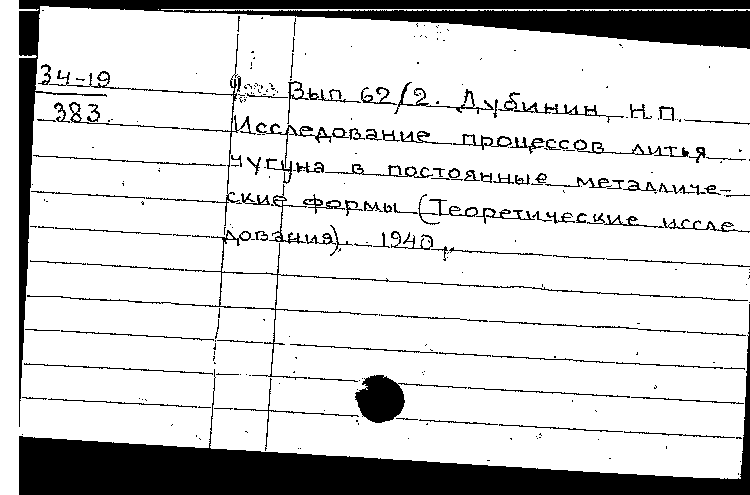 34-19
383.
Вып. 62/2. Дубинин, Н.П.
Исследование процессов литья
чугуна в постоянные металличе-
ские формы (Теоретические иссле
дования). 1940.